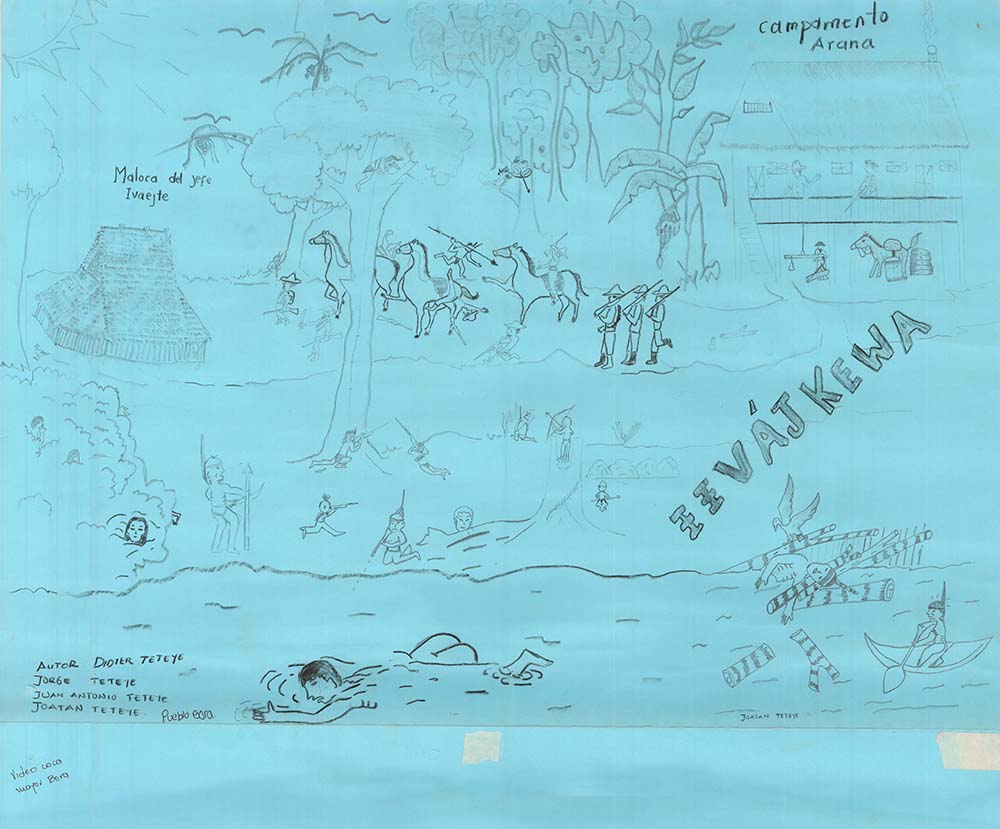 campamento
Arana
Maloca del jefe
Ivaejte
IIVÁJKEWA
AUTOR DIDIER TETEYE
JORGE TETEYE
JUAN ANTONIO TETEYE
JOATAN TETEYE.
Pueblo Bora.
JOATAN TETEYE
Video coca
mayor Bora